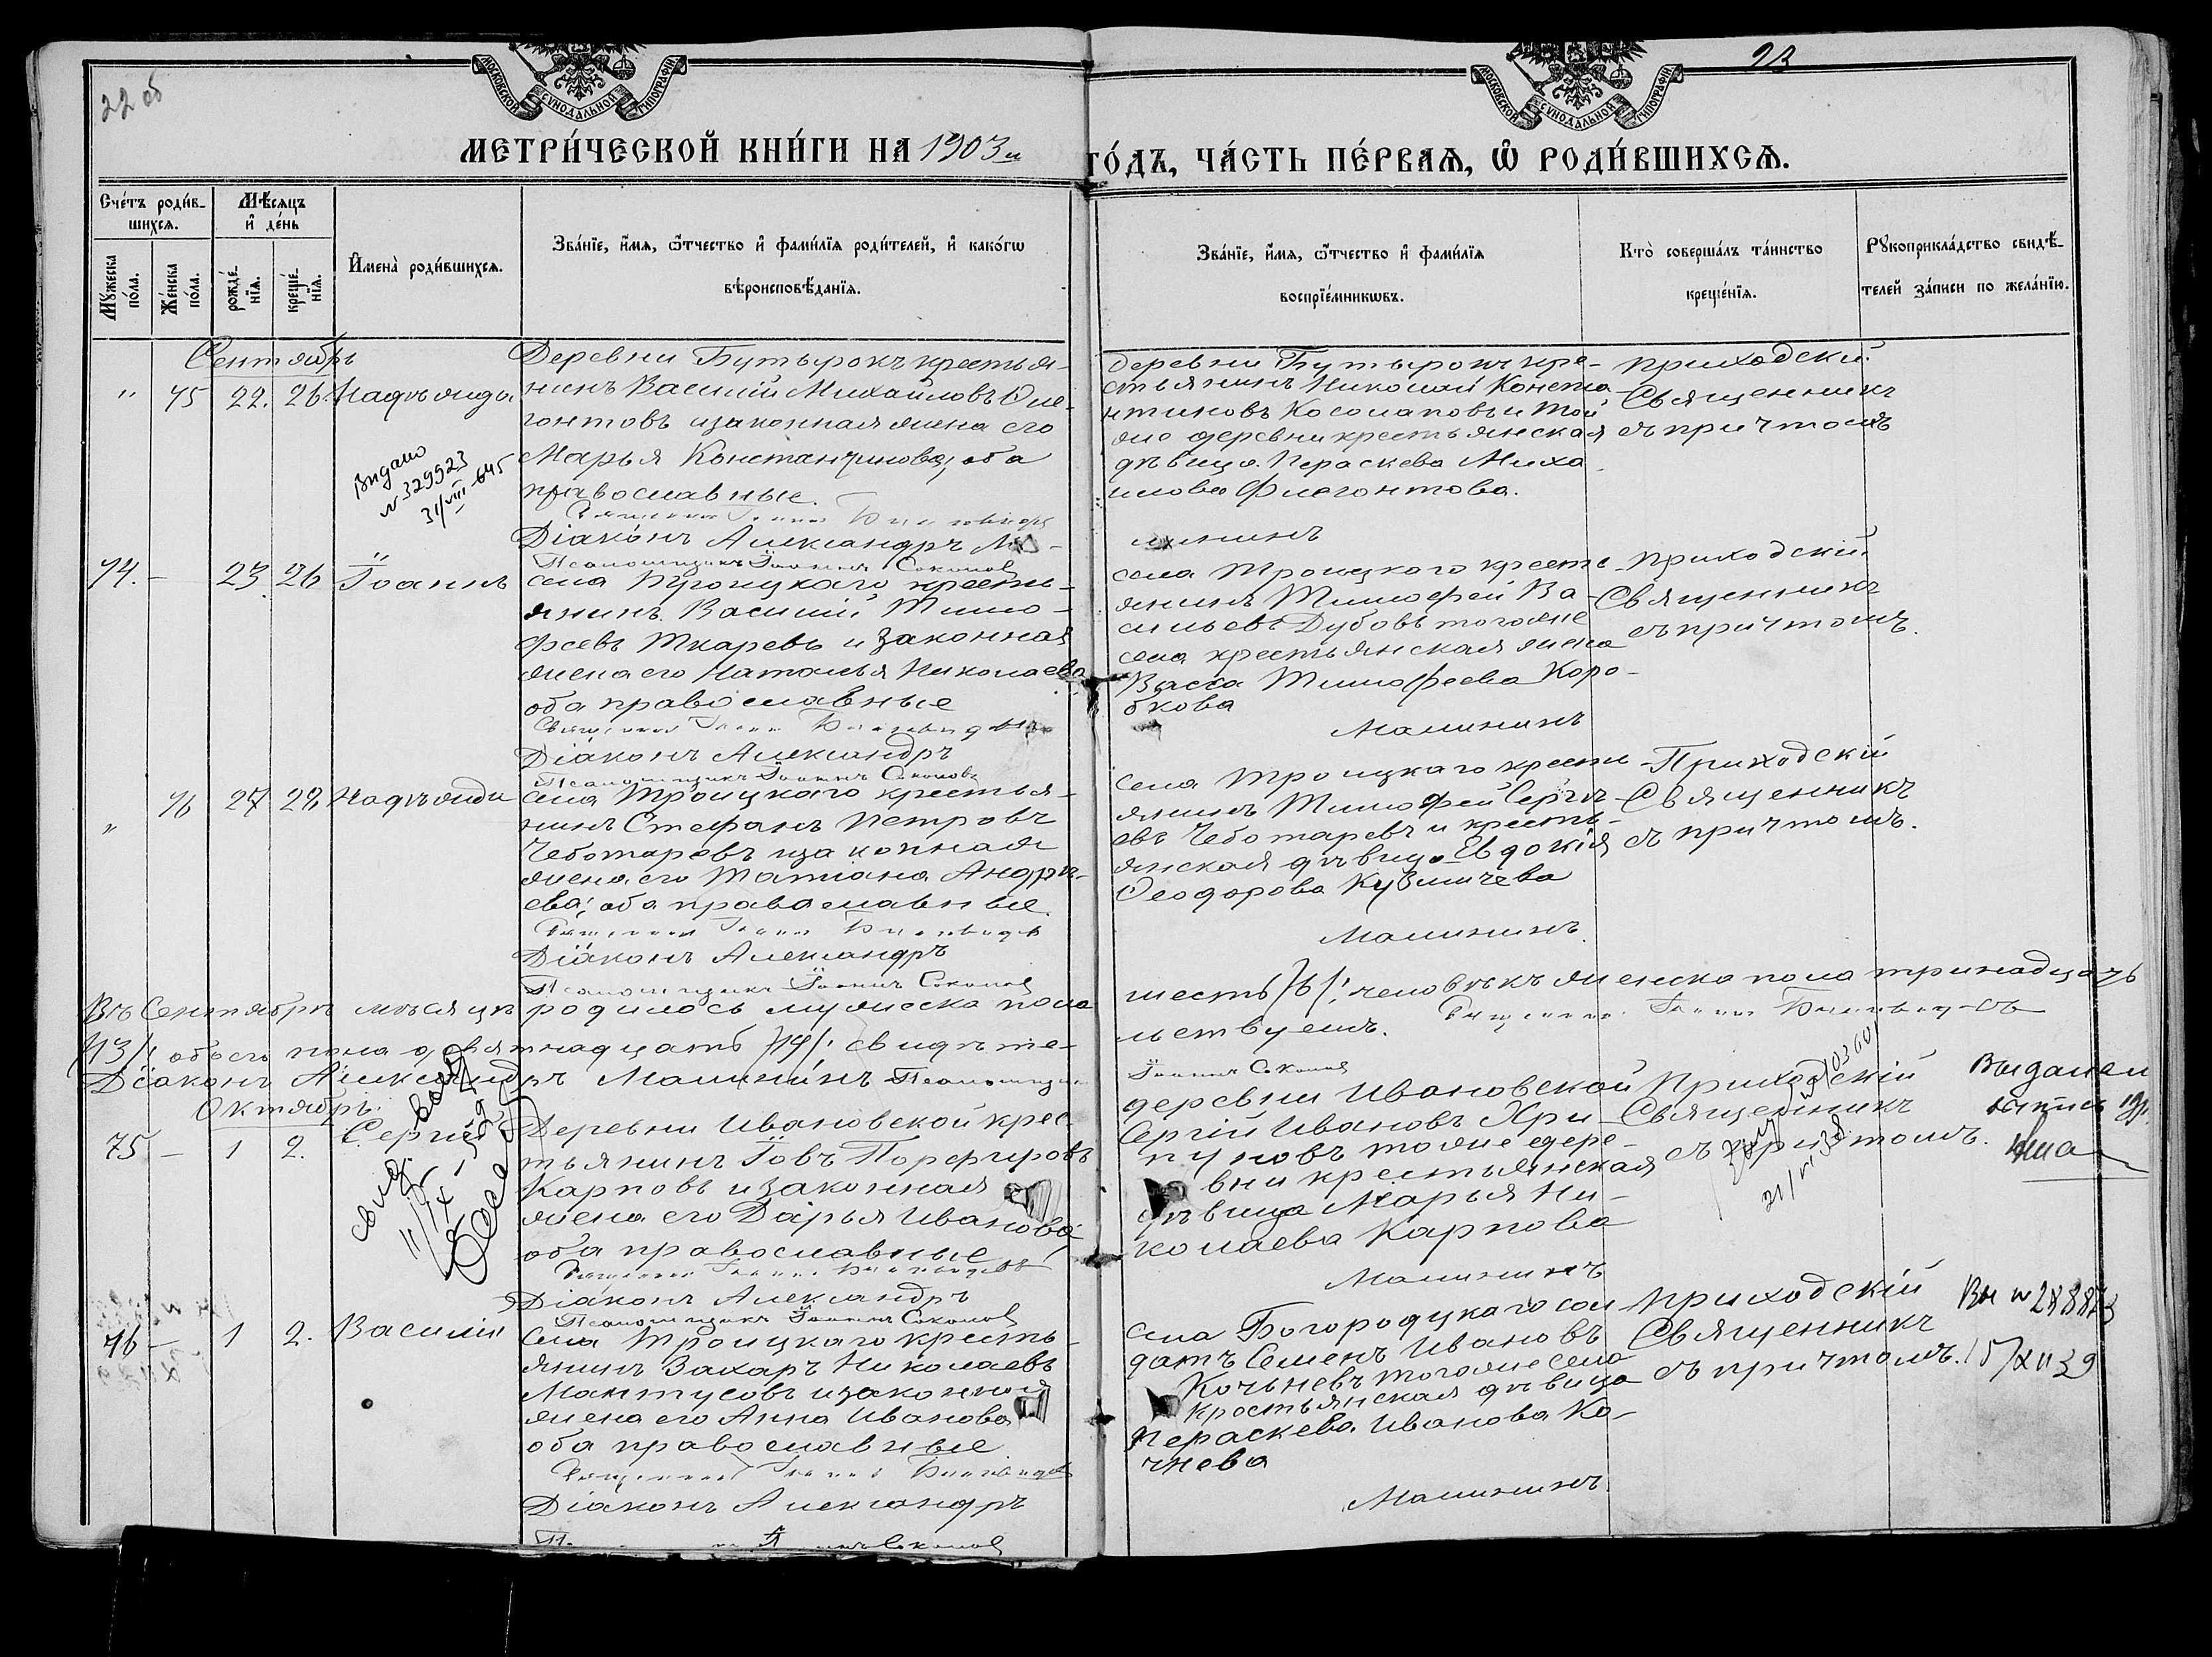 22 об
23
МОСКОВСКОЙ СУНОДАЛЬНОЙ ТИПОГРАФІИ
МОСКОВСКОЙ СУНОДАЛЬНОЙ ТИПОГРАФІИ
МЕТРИ́ЧЕСКОЙ КНИ́ГИ НА 1903 й
ГО́ДЪ, ЧА́СТЬ ПЕ́РВАЯ, Ѡ РОДИ́ВШИХСЯ.
Сче́тъ роди́в-
шихся.
Мѣ́сяцъ
и де́нь
Имена̀ роди́вшихся.
Зва́нїе, и́мя, ѻ́тчество и фами́лїя роди́телей, и како́гѡ
вѣроисповѣ́данїя.
Мꙋ́жеска по́ла.
Же́нска по́ла.
рожде́-нїя.
креще́-нїя.
Зва́нїе, и́мя, ѻ́тчество и фами́лїя
воспрїе́мникѡвъ.
Кто̀ соверша́лъ та́инство
креще́нїя.
Рꙋкоприкла́дство свидѣ́-
телей за́писи по жела́нїю.
Сентябрь
" 45 22. 26. Надѣжда
Деревни Бутырокъ крестья-
нинъ Василій Михайловъ Фле-
гонтовъ и законная жена его
Марья Константинова, оба
православные.
Діаконъ Александръ Ма-
Псаломщикъ Іоаннъ Соколов
Выдано
№ 329923
31/VIII-645
деревни Бутырокъ кре-
стьянинъ Николай Конста-
нтиновъ Косолаповъ и той
же деревни крестьянская
дѣвица Параскева Миха
илова Флегонтова.
линин
приходскій
Священникъ
съ причтомъ
74. - 23. 26 Іоаннъ
села Троицкаго кресть-
янинъ Василій Тимо-
феевъ Ткаревъ и законная
жена его Наталья Николаева
оба православные
Діаконъ Александръ
Псаломщикъ Іоаннъ Соколовъ
села Троицкаго кресть-
янинъ Тимофей Ва-
сильевъ Дубовъ того же
села крестьянская жена
Васса Тимофеева Коро-
бкова
Малининъ
приходскій
Священникъ
съ причтомъ.
" 46 27 28 Надѣжда
села Троицкаго крестья-
нинъ Стефанъ Петровъ
Чеботаревъ и законная
жена его Татіана Андре-
ева; оба православные.
Діаконъ Александръ
Псаломщикъ Іоаннъ Соколов
села Троицкаго кресть-
янинъ Тимофей Сергѣ-
евъ Чеботаревъ и кресть-
янская дѣвица Евдокія
Ѳеодорова Кузмичева
Малининъ.
Приходскій
Священникъ
съ причтомъ.
Въ Сентябрѣ мѣсяцѣ родилось мужеска пола
шесть /6/; человѣкъ женска пола тринадцать
/13/; обоего пола девятнадцать /19/; свидѣте-
льствуемъ.
Діаконъ Александръ Малининъ Псаломщик
Іоаннъ Соколов
Октябрь.
75 - 1 2. Сергій
Деревни Ивановской крес
тьянинъ Іовъ Порфировъ
Карповъ и законная
жена его Дарья Иванова
оба православные
Діаконъ Александръ
Псаломщикъ Іоаннъ Соколов
деревни Ивановской
Сергій Ивановъ Хри-
пуновъ тоя же дере-
вни крестьянская
дѣвица Марья Ни-
колаева Карпова
Малининъ
приходскій
Священникъ
съ причтомъ.
21/VI 38
76 - 1 2. Василій
Села Троицкаго кресть-
янинъ Захаръ Николаевъ
Мантусовъ и законная
жена его Анна Иванова
оба православные
Діаконъ Александръ
села Богородицкаго сол
датъ Семенъ Ивановъ
Кочьневъ того же села
крестьянская дѣвица
Параскева Иванова Ко-
чнева
Малининъ.
приходскій
Священникъ
съ причтомъ.
15/XII 39